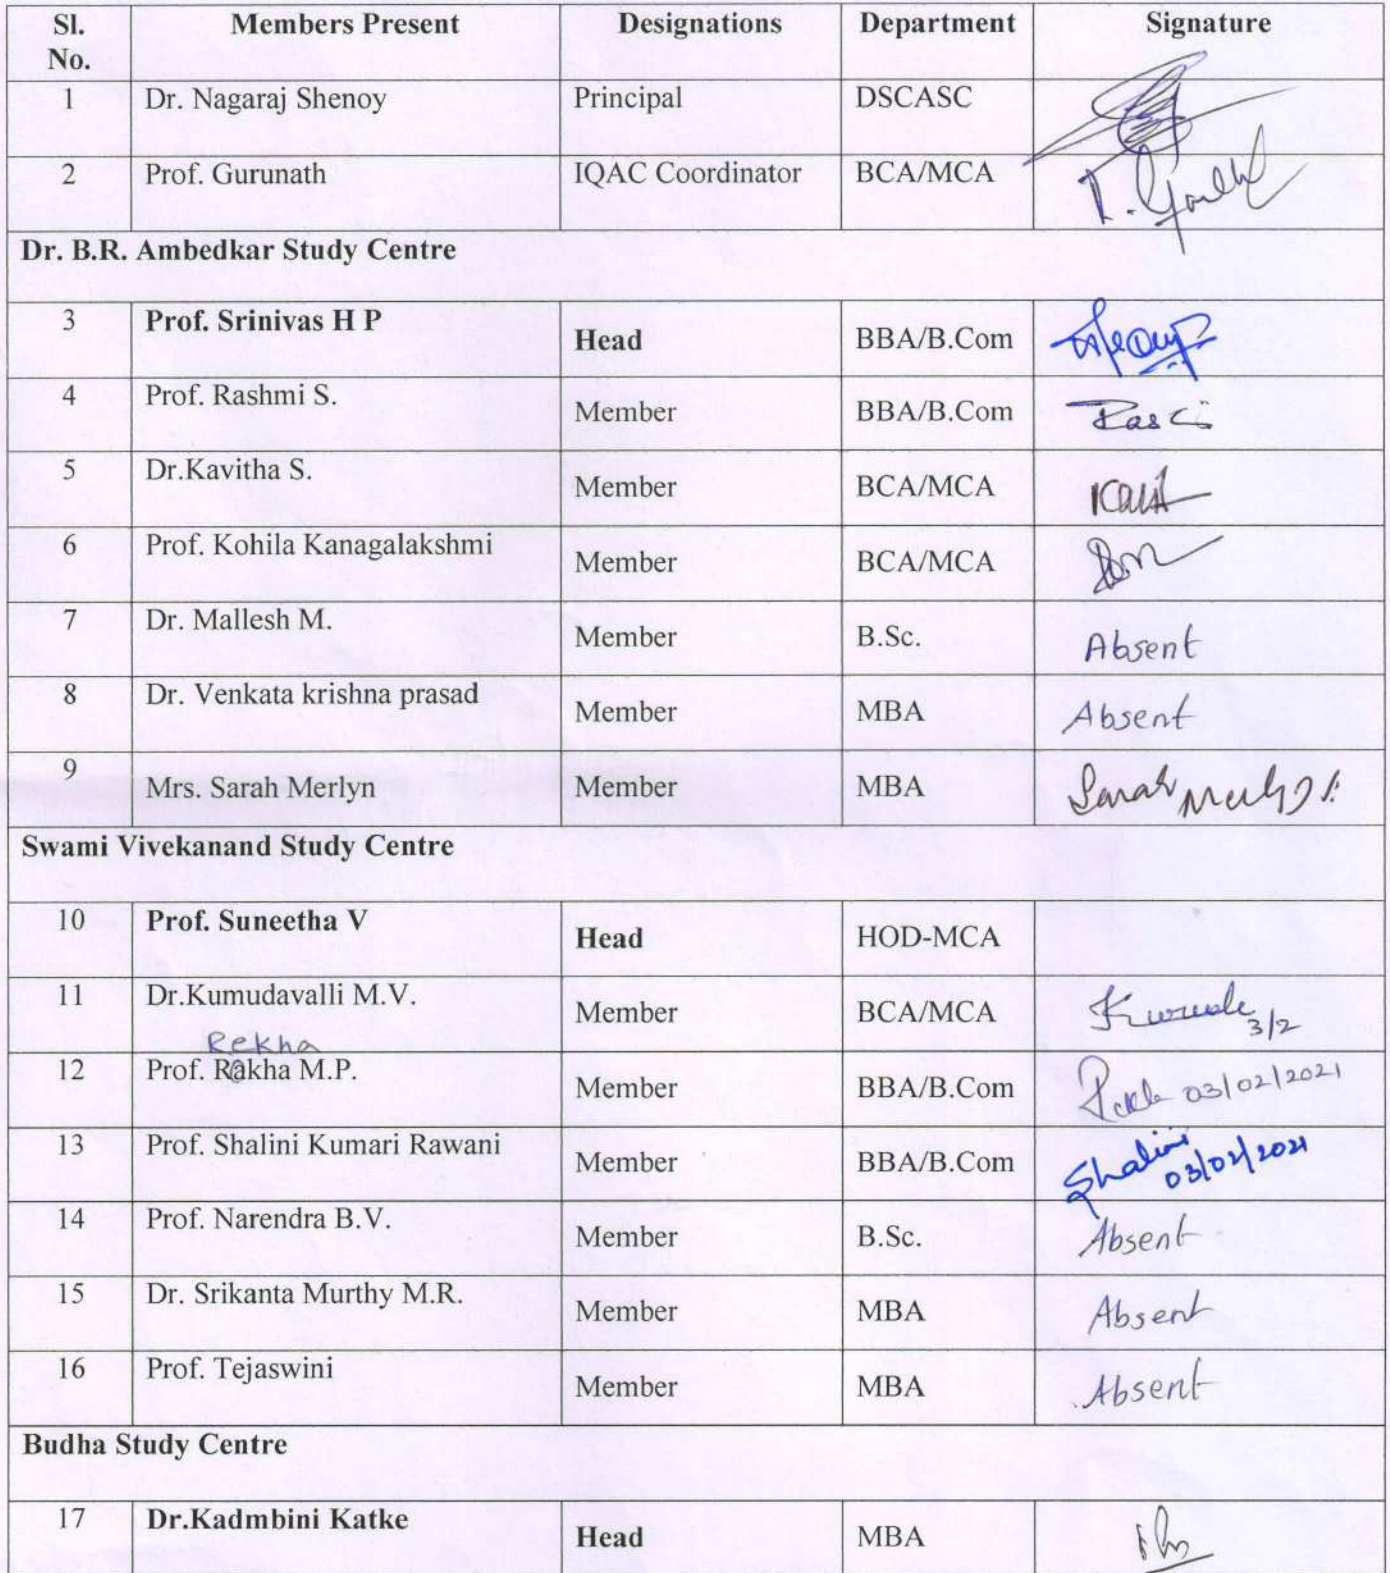 Sl. No. Members Present Designations Department Signature
1 Dr. Nagaraj Shenoy Principal DSCASC
2 Prof. Gurunath IQAC Coordinator BCA/MCA
Dr. B.R. Ambedkar Study Centre
3 Prof. Srinivas H P Head BBA/B.Com
4 Prof. Rashmi S. Member BBA/B.Com
5 Dr.Kavitha S. Member BCA/MCA
6 Prof. Kohila Kanagalakshmi Member BCA/MCA
7 Dr. Mallesh M. Member B.Sc. Absent
8 Dr. Venkata krishna prasad Member MBA Absent
9 Mrs. Sarah Merlyn Member MBA Sarah
Swami Vivekanand Study Centre
10 Prof. Suneetha V Head HOD-MCA
11 Dr.Kumudavalli M.V. Member BCA/MCA 3/2
Rekha
12 Prof. Rakha M.P. Member BBA/B.Com 03/02/2021
13 Prof. Shalini Kumari Rawani Member BBA/B.Com Shalini 03/02/2021
14 Prof. Narendra B.V. Member B.Sc. Absent
15 Dr. Srikanta Murthy M.R. Member MBA Absent
16 Prof. Tejaswini Member MBA Absent
Budha Study Centre
17 Dr.Kadmbini Katke Head MBA